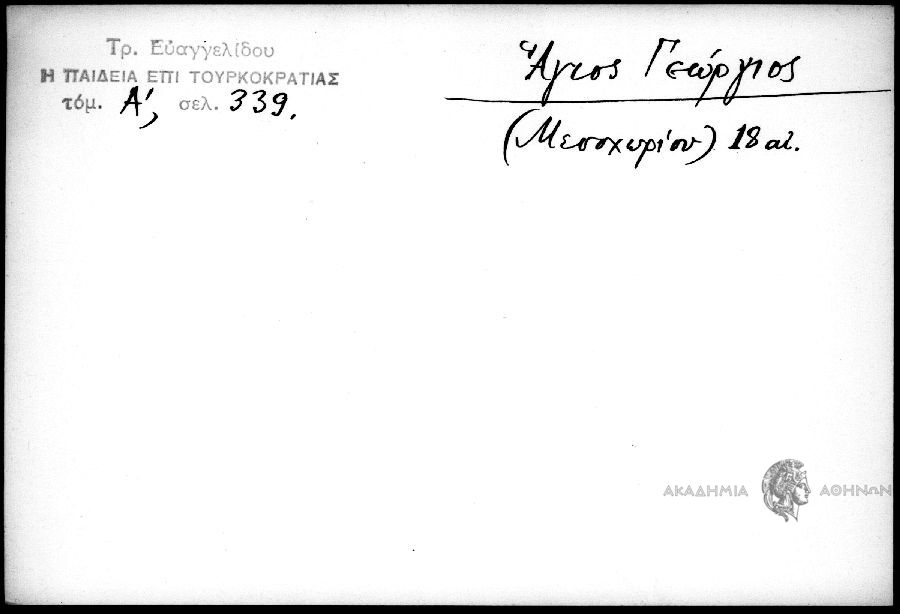 Τρ. Εὐαγγελίδου
Η ΠΑΙΔΕΙΑ ΕΠΙ ΤΟΥΡΚΟΚΡΑΤΙΑΣ
τόμ. Α', σελ. 339.
Ἅγιος Γεώργιος
(Μεσοχωρίου) 18 αἰ.
ΑΚΑΔΗΜΙΑ ΑΘΗΝΩΝ